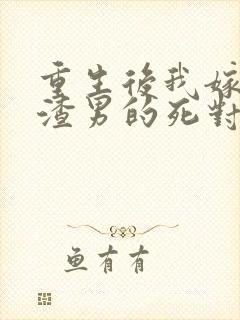 重生後我嫁
渣男的死對
鱼有有